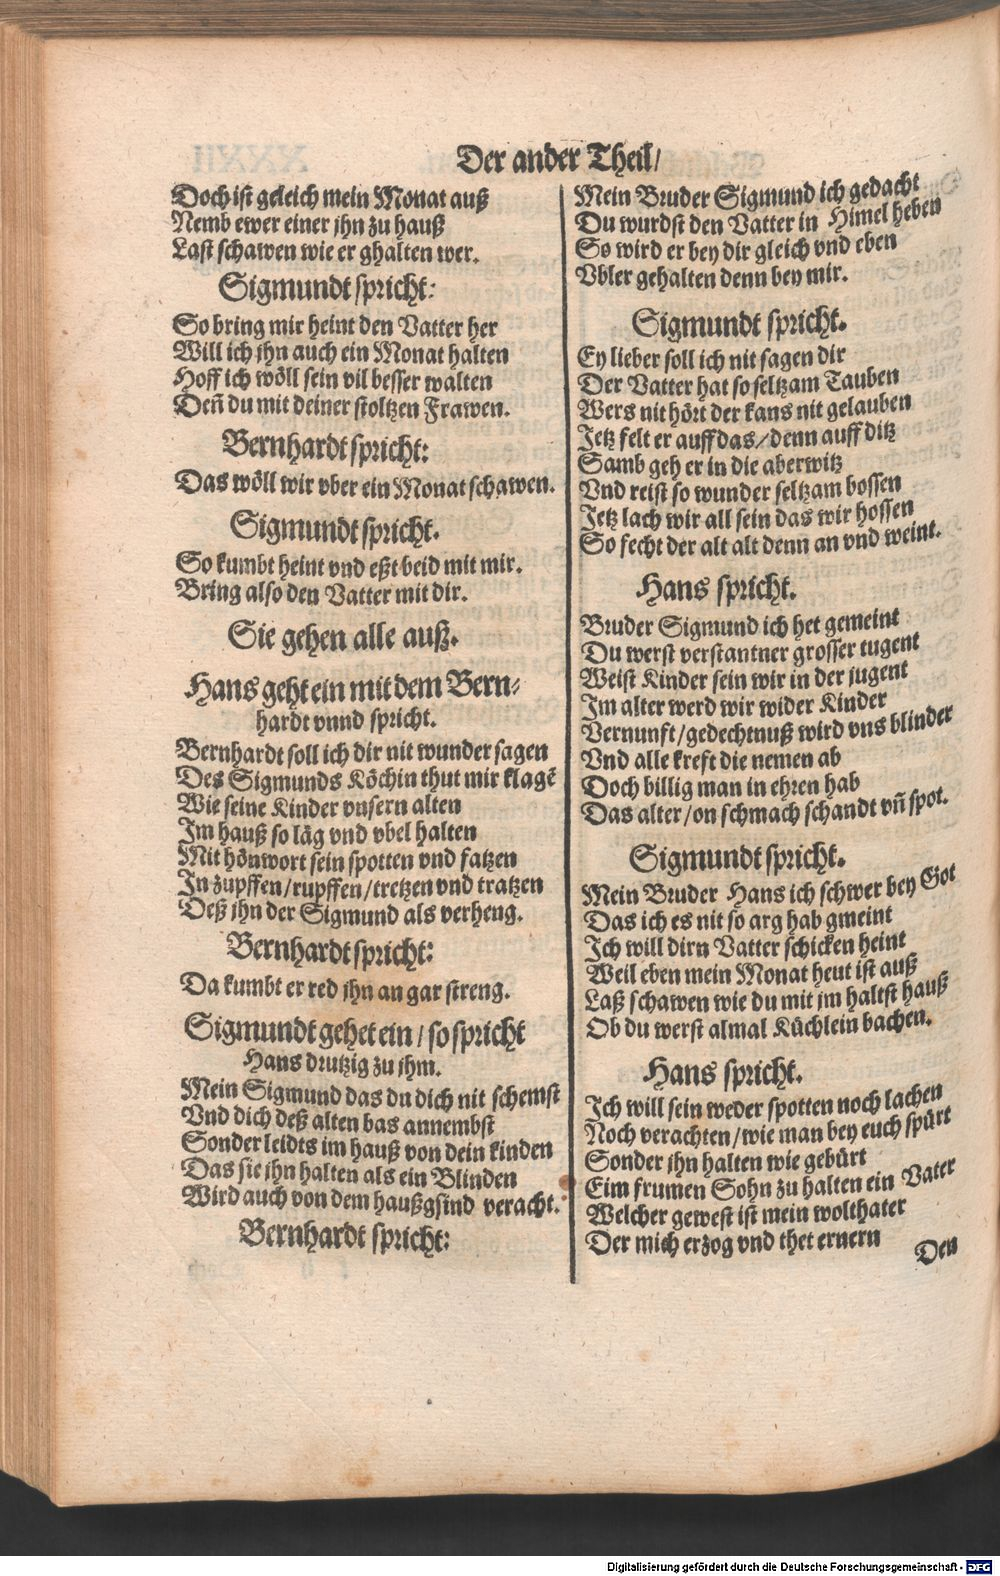 Der ander Theil/
Doch ist geleich mein Monat auß
Nemb ewer einer jhn zu hauß
Last schawen wie er ghalten wer.
Sigmundt spricht:
So bring mir heint den Vatter her
Will ich jhn auch ein Monat halten
Hoff ich wöll sein vil besser walten
Deñ du mit deiner stoltzen Frawen.
Bernhardt spricht:
Das wöll wir vber ein Monat schawen.
Sigmundt spricht.
So kumbt heint vnd eßt beid mit mir.
Bring also den Vatter mit dir.
Sie gehen alle auß.
Hans geht ein mit dem Bern-
hardt vnnd spricht.
Bernhardt soll ich dir nit wunder sagen
Des Sigmunds Köchin thut mir klagē
Wie seine Kinder vnsern alten
Im hauß so läg vnd vbel halten
Mit hönwort sein spotten vnd fatzen
In zupffen/rupffen/tretzen vnd tratzen
Deß jhn der Sigmund als verheng.
Bernhardt spricht:
Da kumbt er red jhn an gar streng.
Sigmundt gehet ein/so spricht
Hans drutzig zu jhm.
Mein Sigmund das du dich nit schemst
Vnd dich deß alten bas annembst
Sonder leidts im hauß von dein kinden
Das sie jhn halten als ein Blinden
Wird auch von dem haußgsind veracht.
Bernhardt spricht:
Mein Bruder Sigmund ich gedacht
Du wurdst den Vatter in Himel heben
So wird er bey dir gleich vnd eben
Vbler gehalten denn bey mir.
Sigmundt spricht.
Ey lieber soll ich nit sagen dir
Der Vatter hat so seltzam Tauben
Wers nit hört der kans nit gelauben
Jetz felt er auff das/denn auff ditz
Samb geh er in die aberwitz
Vnd reist so wunder seltzam bossen
Jetz lach wir all sein das wir hossen
So fecht der alt alt denn an vnd weint.
Hans spricht.
Bruder Sigmund ich het gemeint
Du werst verstantner grosser tugent
Weist Kinder sein wir in der jugent
Im alter werd wir wider Kinder
Vernunft/gedechtnuß wird vns blinder
Vnd alle kreft die nemen ab
Doch billig man in ehren hab
Das alter/on schmach schandt vñ spot.
Sigmundt spricht.
Mein Bruder Hans ich schwer bey Got
Das ich es nit so arg hab gmeint
Ich will dirn Vatter schicken heint
Weil eben mein Monat heut ist auß
Laß schawen wie du mit jm haltst hauß
Ob du werst almal Küchlein bachen.
Hans spricht.
Ich will sein weder spotten noch lachen
Noch verachten/wie man bey euch spürt
Sonder jhn halten wie gebürt
Eim frumen Sohn zu halten ein Vater
Welcher gewest ist mein wolthater
Der mich erzog vnd thet ernern
Den
Digitalisierung gefördert durch die Deutsche Forschungsgemeinschaft - DFG